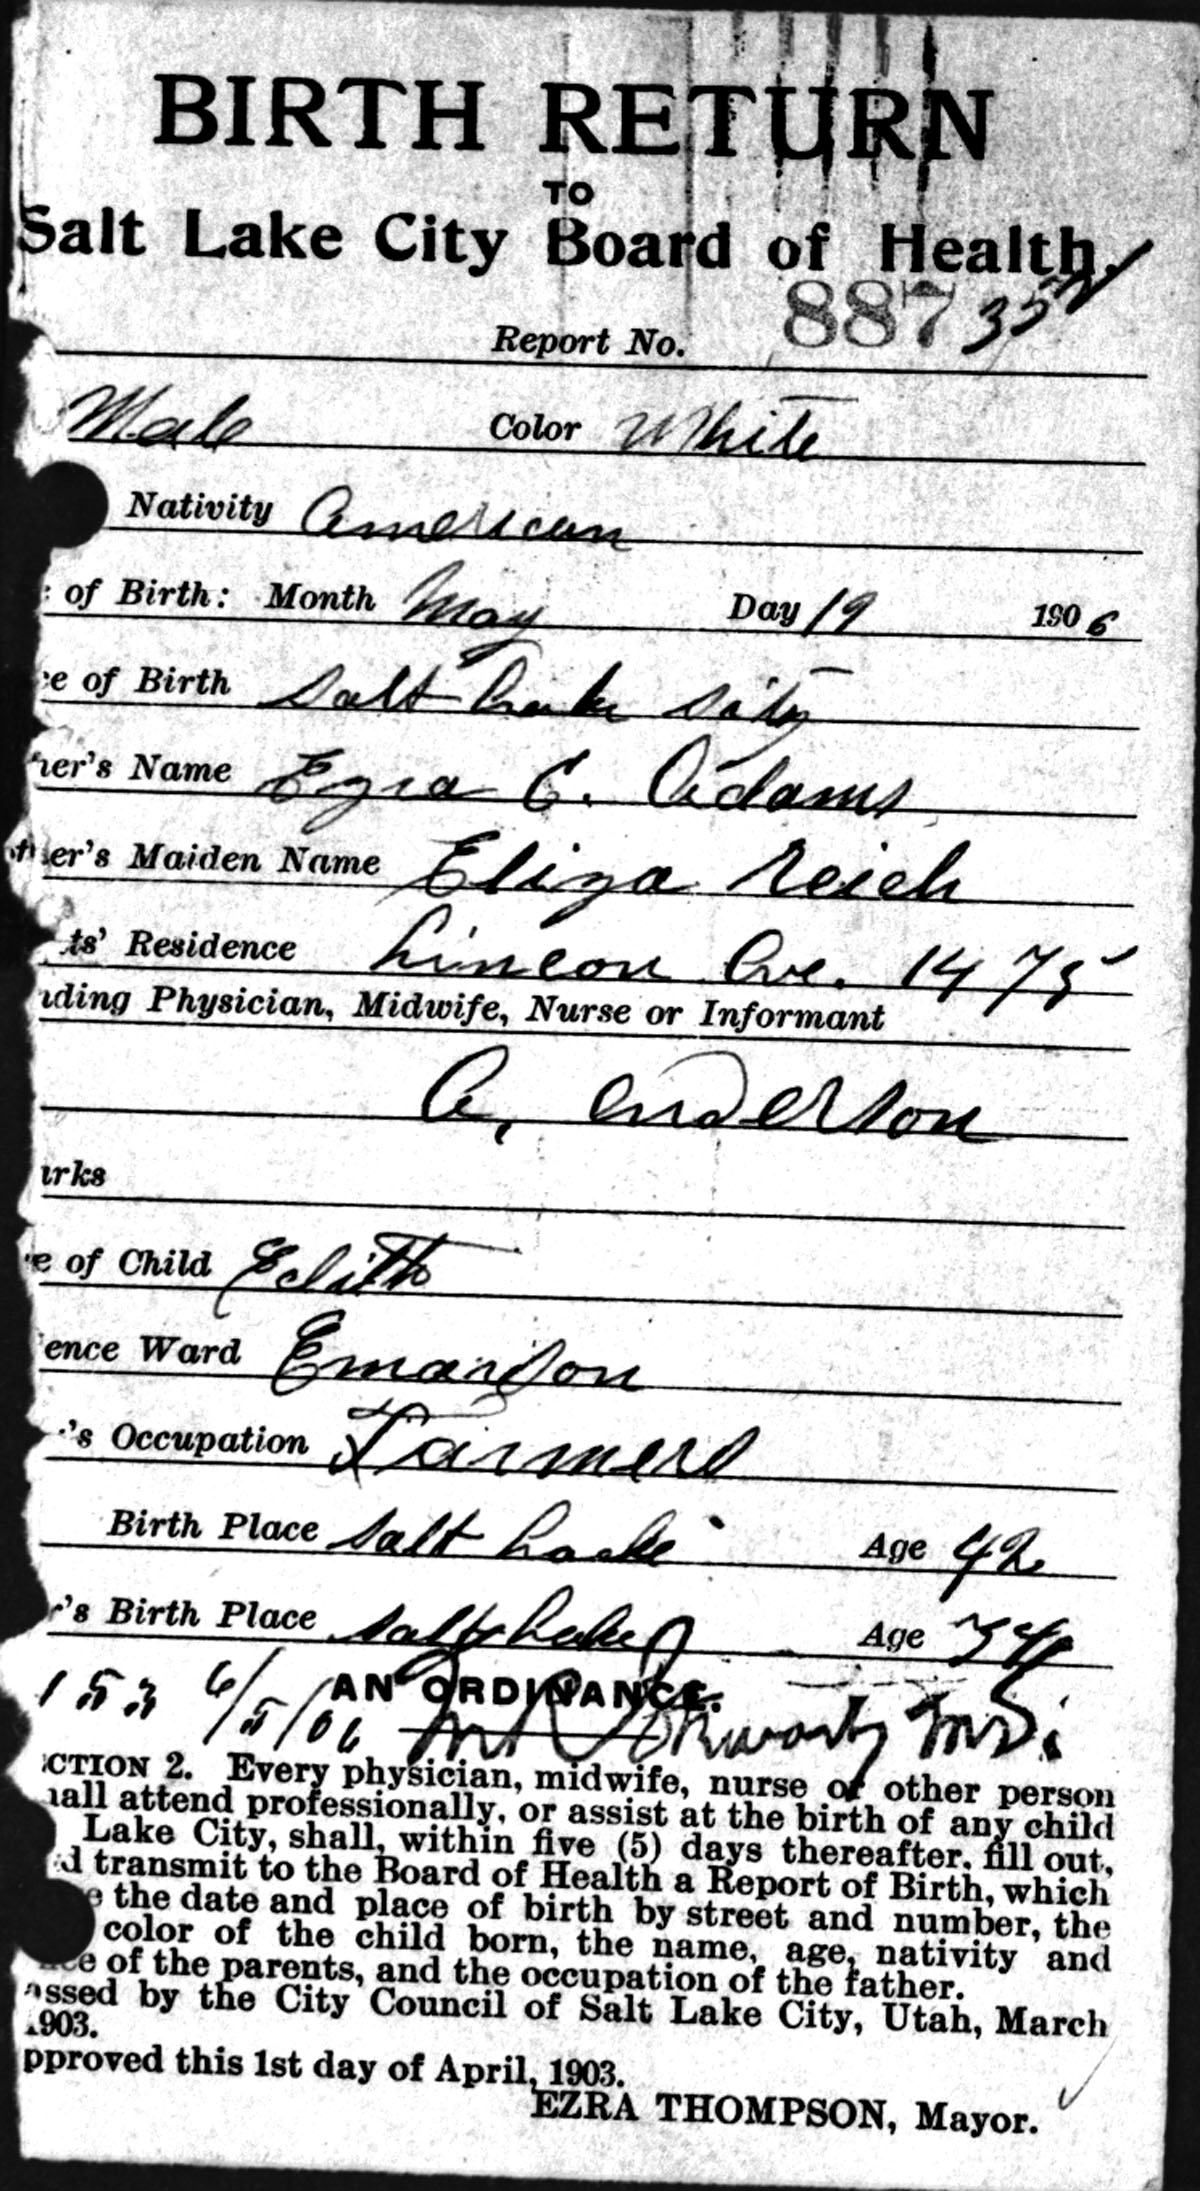 BIRTH RETURN
TO
Salt Lake City Board of Health.
Report No. 887 352
Male Color White
Nativity American
of Birth: Month May Day 19 1906
e of Birth Salt Lake sity
her's Name Ezra C. Adams
ther's Maiden Name Eliza Reich
ts' Residence Lincon Ave. 1475
nding Physician, Midwife, Nurse or Informant
A. anderson
arks
e of Child Edith
ence Ward Emardson
's Occupation Farmers
Birth Place Salt Lake Age 42
r's Birth Place Salt Lake Age 34
153 6/5/06 AN ORDINANCE.
M R Schwartz M.D.
CTION 2. Every physician, midwife, nurse or other person
hall attend professionally, or assist at the birth of any child
Lake City, shall, within five (5) days thereafter, fill out,
d transmit to the Board of Health a Report of Birth, which
e the date and place of birth by street and number, the
color of the child born, the name, age, nativity and
nce of the parents, and the occupation of the father.
assed by the City Council of Salt Lake City, Utah, March
1903.
pproved this 1st day of April, 1903.
EZRA THOMPSON, Mayor.